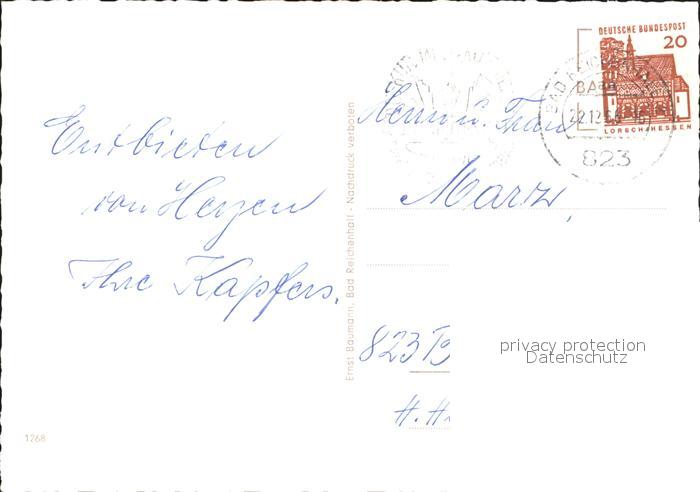 Entbieten
von Herzen
Ihre Kapfers.
1268
Ernst Baumann, Bad Reichenhall - Nachdruck verboten
DEUTSCHE BUNDESPOST
20
LORSCH/HESSEN
BAD REICHENHALL
22.12.
823
Herrn u. Frau
Marx,
823 B
H. H
privacy protection
Datenschutz